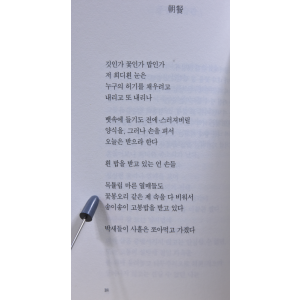 朝餐
깃인가 꽃인가 밥인가
저 희디흰 눈은
누구의 허기를 채우려고
내리고 또 내리나
뱃속에 들기도 전에 스러져버릴
양식을, 그러나 손을 펴서
오늘은 받으라 한다
흰 밥을 받고 있는 언 손들
목튤립 마른 열매들도
꽃봉오리 같은 제 속을 다 비워서
송이송이 고봉밥을 받고 있다
박새들이 사흘은 쪼아먹고 가겠다